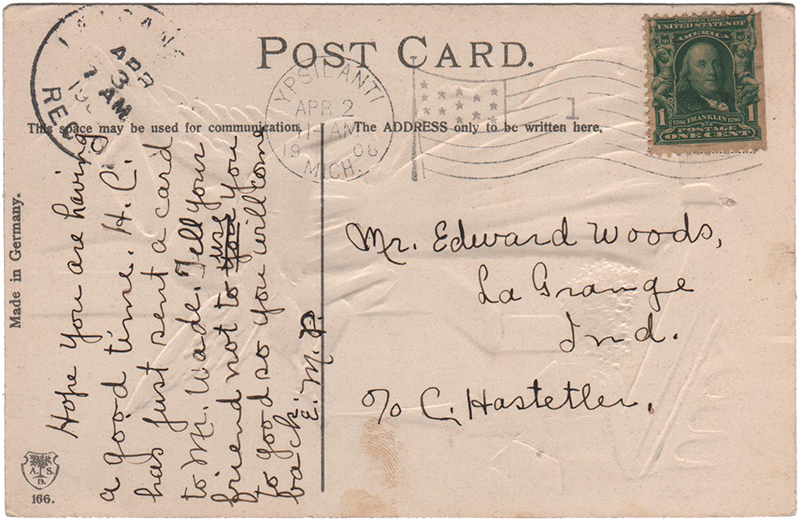 POST CARD.
This space may be used for communication.
The ADDRESS only to be written here.
LAGRANGE
APR
3
7 AM
REC'D
YPSILANTI
APR 2
11 AM
1908
MICH.
1
SERIES 1902
UNITED STATES OF
AMERICA
1706 FRANKLIN 1790
1 1
POSTAGE
ONE CENT
Made in Germany.
Hope you are having
a good time. H. C.
has just sent a card
to Mr. Wade. Tell your
friend not to use you
to good so you will come
back.
E. M. P.
Mr. Edward Woods,
La Grange
Ind.
℅ C. Hastetler.
A. S.
B.
166.